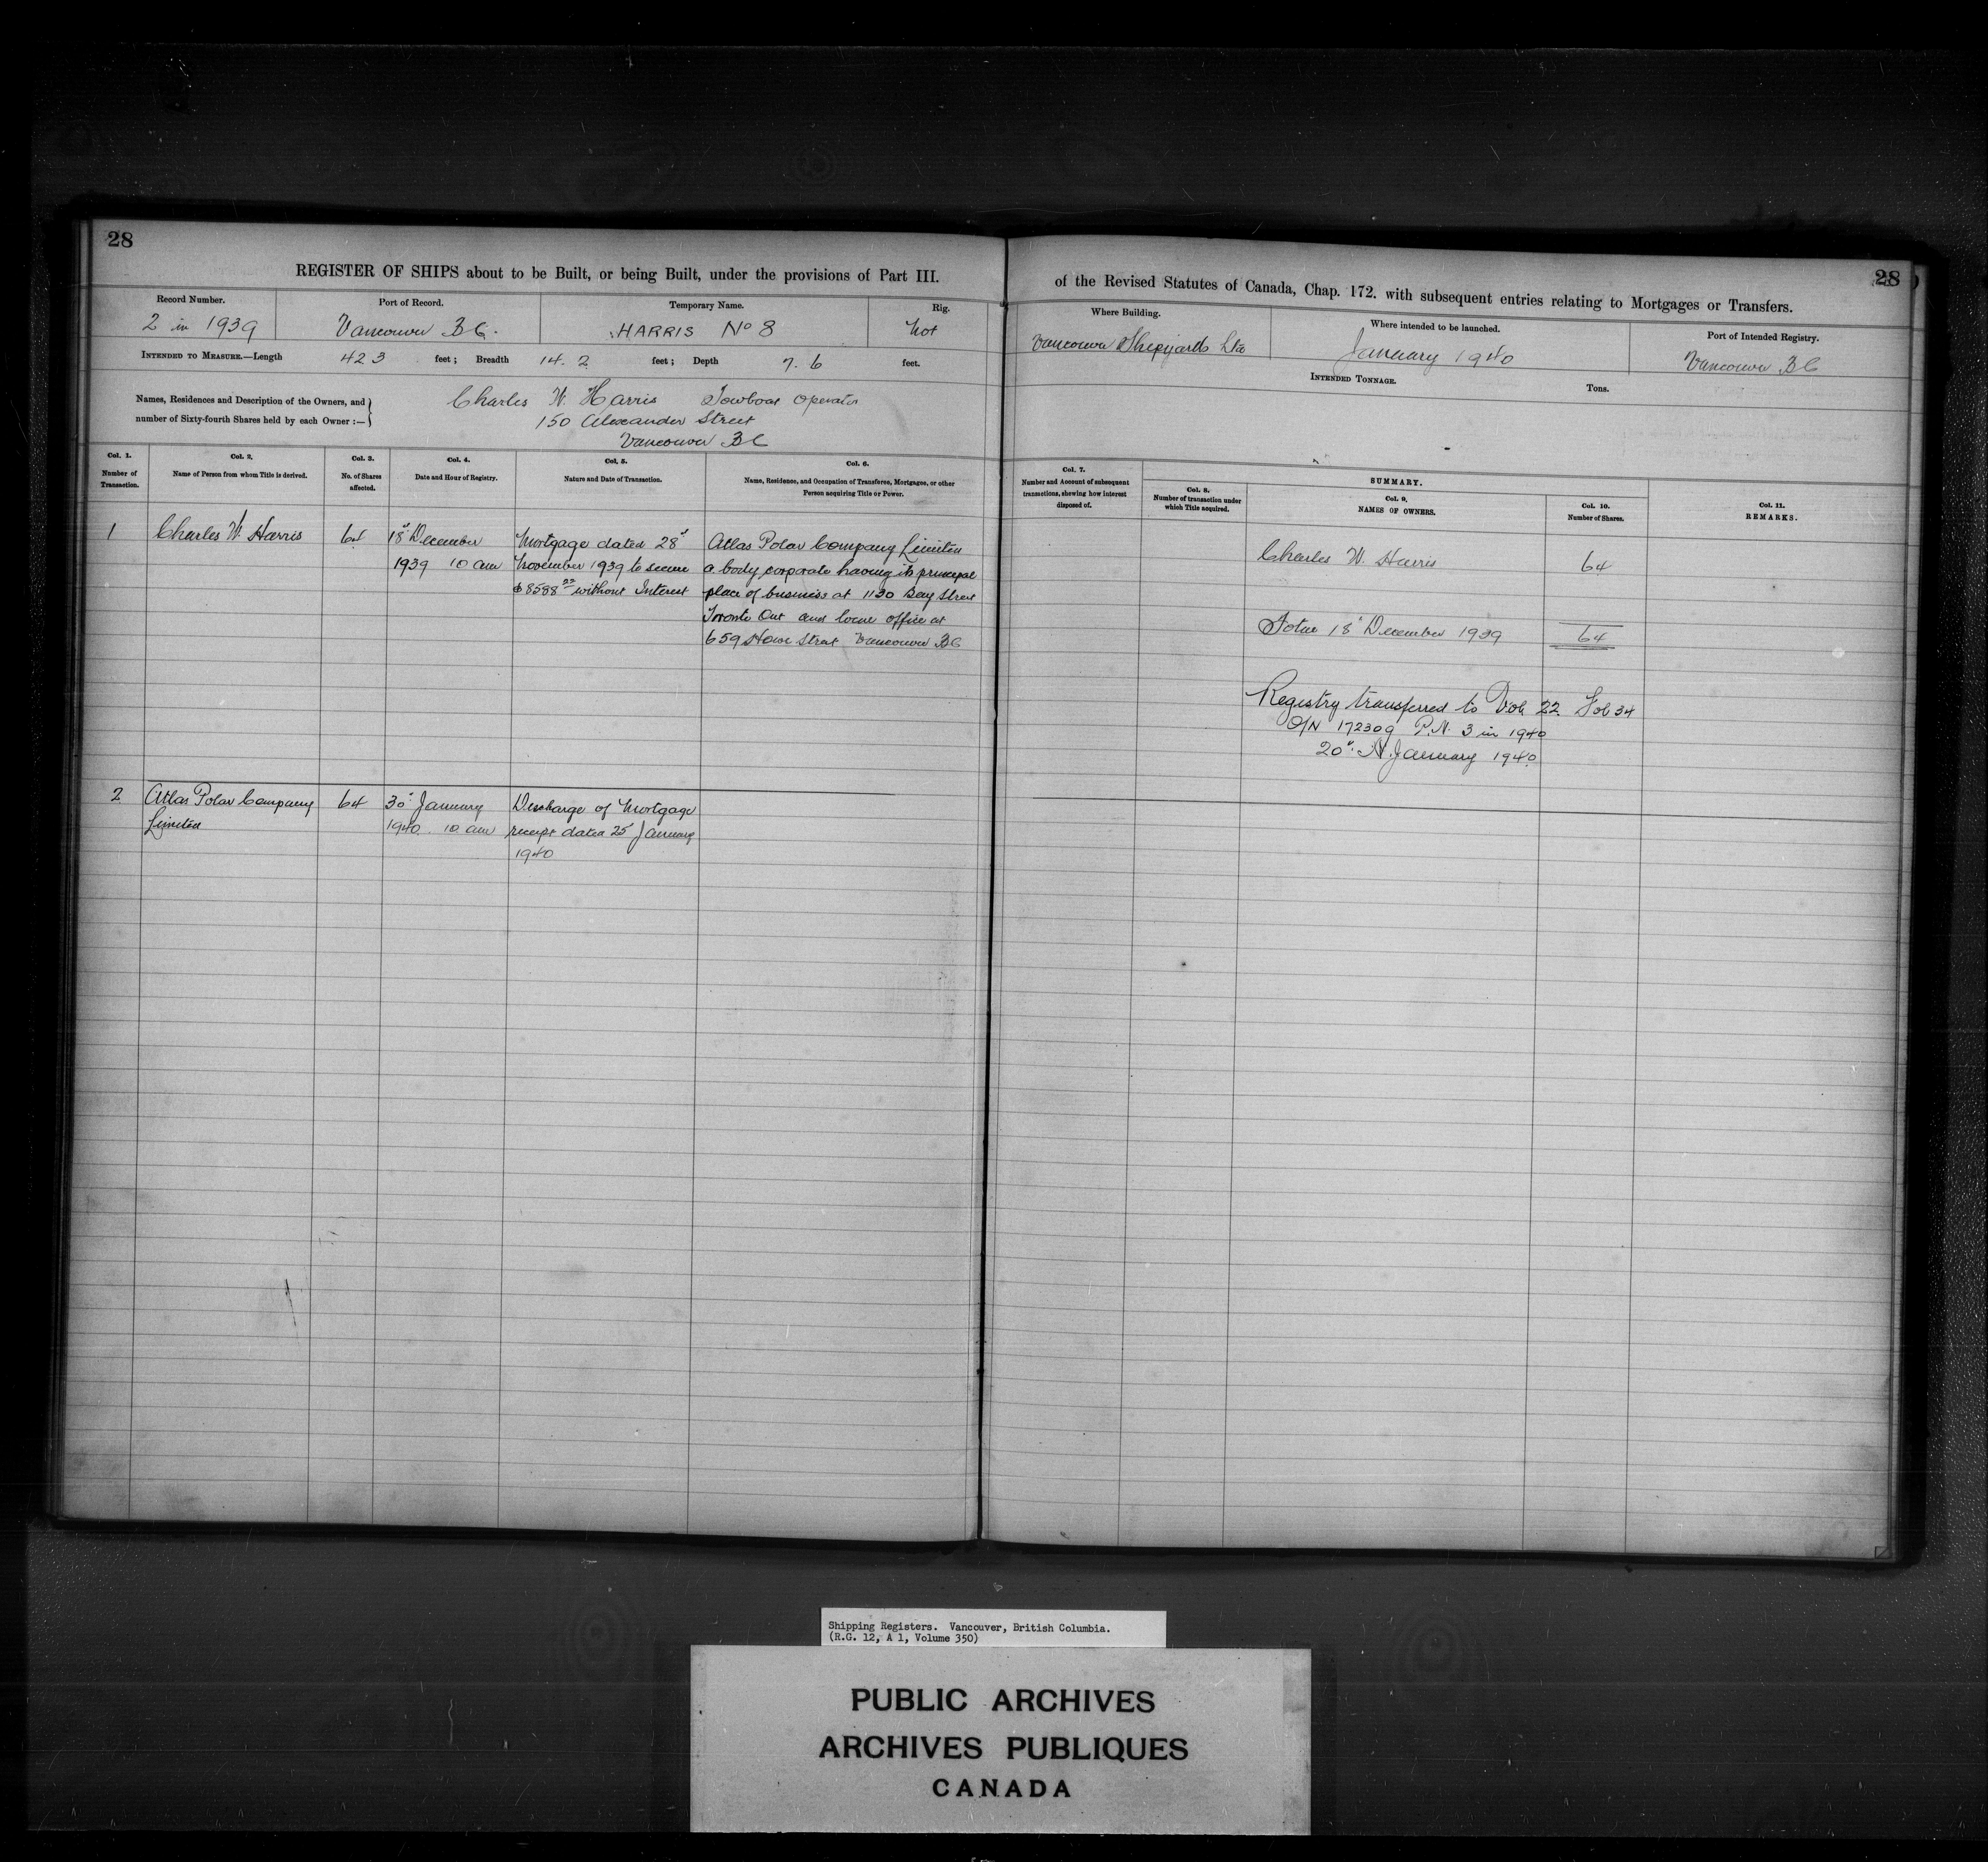 28
REGISTER OF SHIPS about to be Built, or being Built, under the provisions of Part III.
Record Number.
Port of Record.
Temporary Name.
Rig.
2 in 1939
Vancouver B.C.
HARRIS No 8
Not
INTENDED TO MEASURE.—Length 42 3 feet; Breadth 14. 2 feet; Depth 7. 6 feet.
Names, Residences and Description of the Owners, and
number of Sixty-fourth Shares held by each Owner :—
Charles W. Harris Towboat Operator
150 Alexander Street
Vancouver BC
Col. 1.
Number of
Transaction.
Col. 2.
Name of Person from whom Title is derived.
Col. 3.
No. of Shares
affected.
Col. 4.
Date and Hour of Registry.
Col. 5.
Nature and Date of Transaction.
Col. 6.
Name, Residence, and Occupation of Transferee, Mortgagee, or other
Person acquiring Title or Power.
1
Charles W. Harris
64
18" December
1939 10 am
Mortgage dated 28"
November 1939 to secure
$8588 without Interest
Atlas Polar Company Limited
a body corporate having its principal
place of business at 1130 Bay Street
Toronto Ont and local office at
659 Howe Street Vancouver BC
2
Atlas Polar Company
Limited
64
30" January
1940. 10 am
Discharge of Mortgage
receipt dated 25 January
1940
28
of the Revised Statutes of Canada, Chap. 172. with subsequent entries relating to Mortgages or Transfers.
Where Building.
Where intended to be launched.
Port of Intended Registry.
Vancouver Shipyards Ltd
January 1940
Vancouver BC
INTENDED TONNAGE.
Tons.
Col. 7.
Number and Account of subsequent
transactions, shewing how interest
disposed of.
SUMMARY.
Col. 8.
Number of transaction under
which Title acquired.
Col. 9.
NAMES OF OWNERS.
Col. 10.
Number of Shares.
Col. 11.
REMARKS.
Charles W. Harris
64
Total 18" December 1939
64
Registry transferred to Vol. 22. Fol 34
O/N 172309 P.N. 3 in 1940
20" January 1940
Shipping Registers. Vancouver, British Columbia.
(R.G. 12, A 1, Volume 350)
PUBLIC ARCHIVES
ARCHIVES PUBLIQUES
CANADA